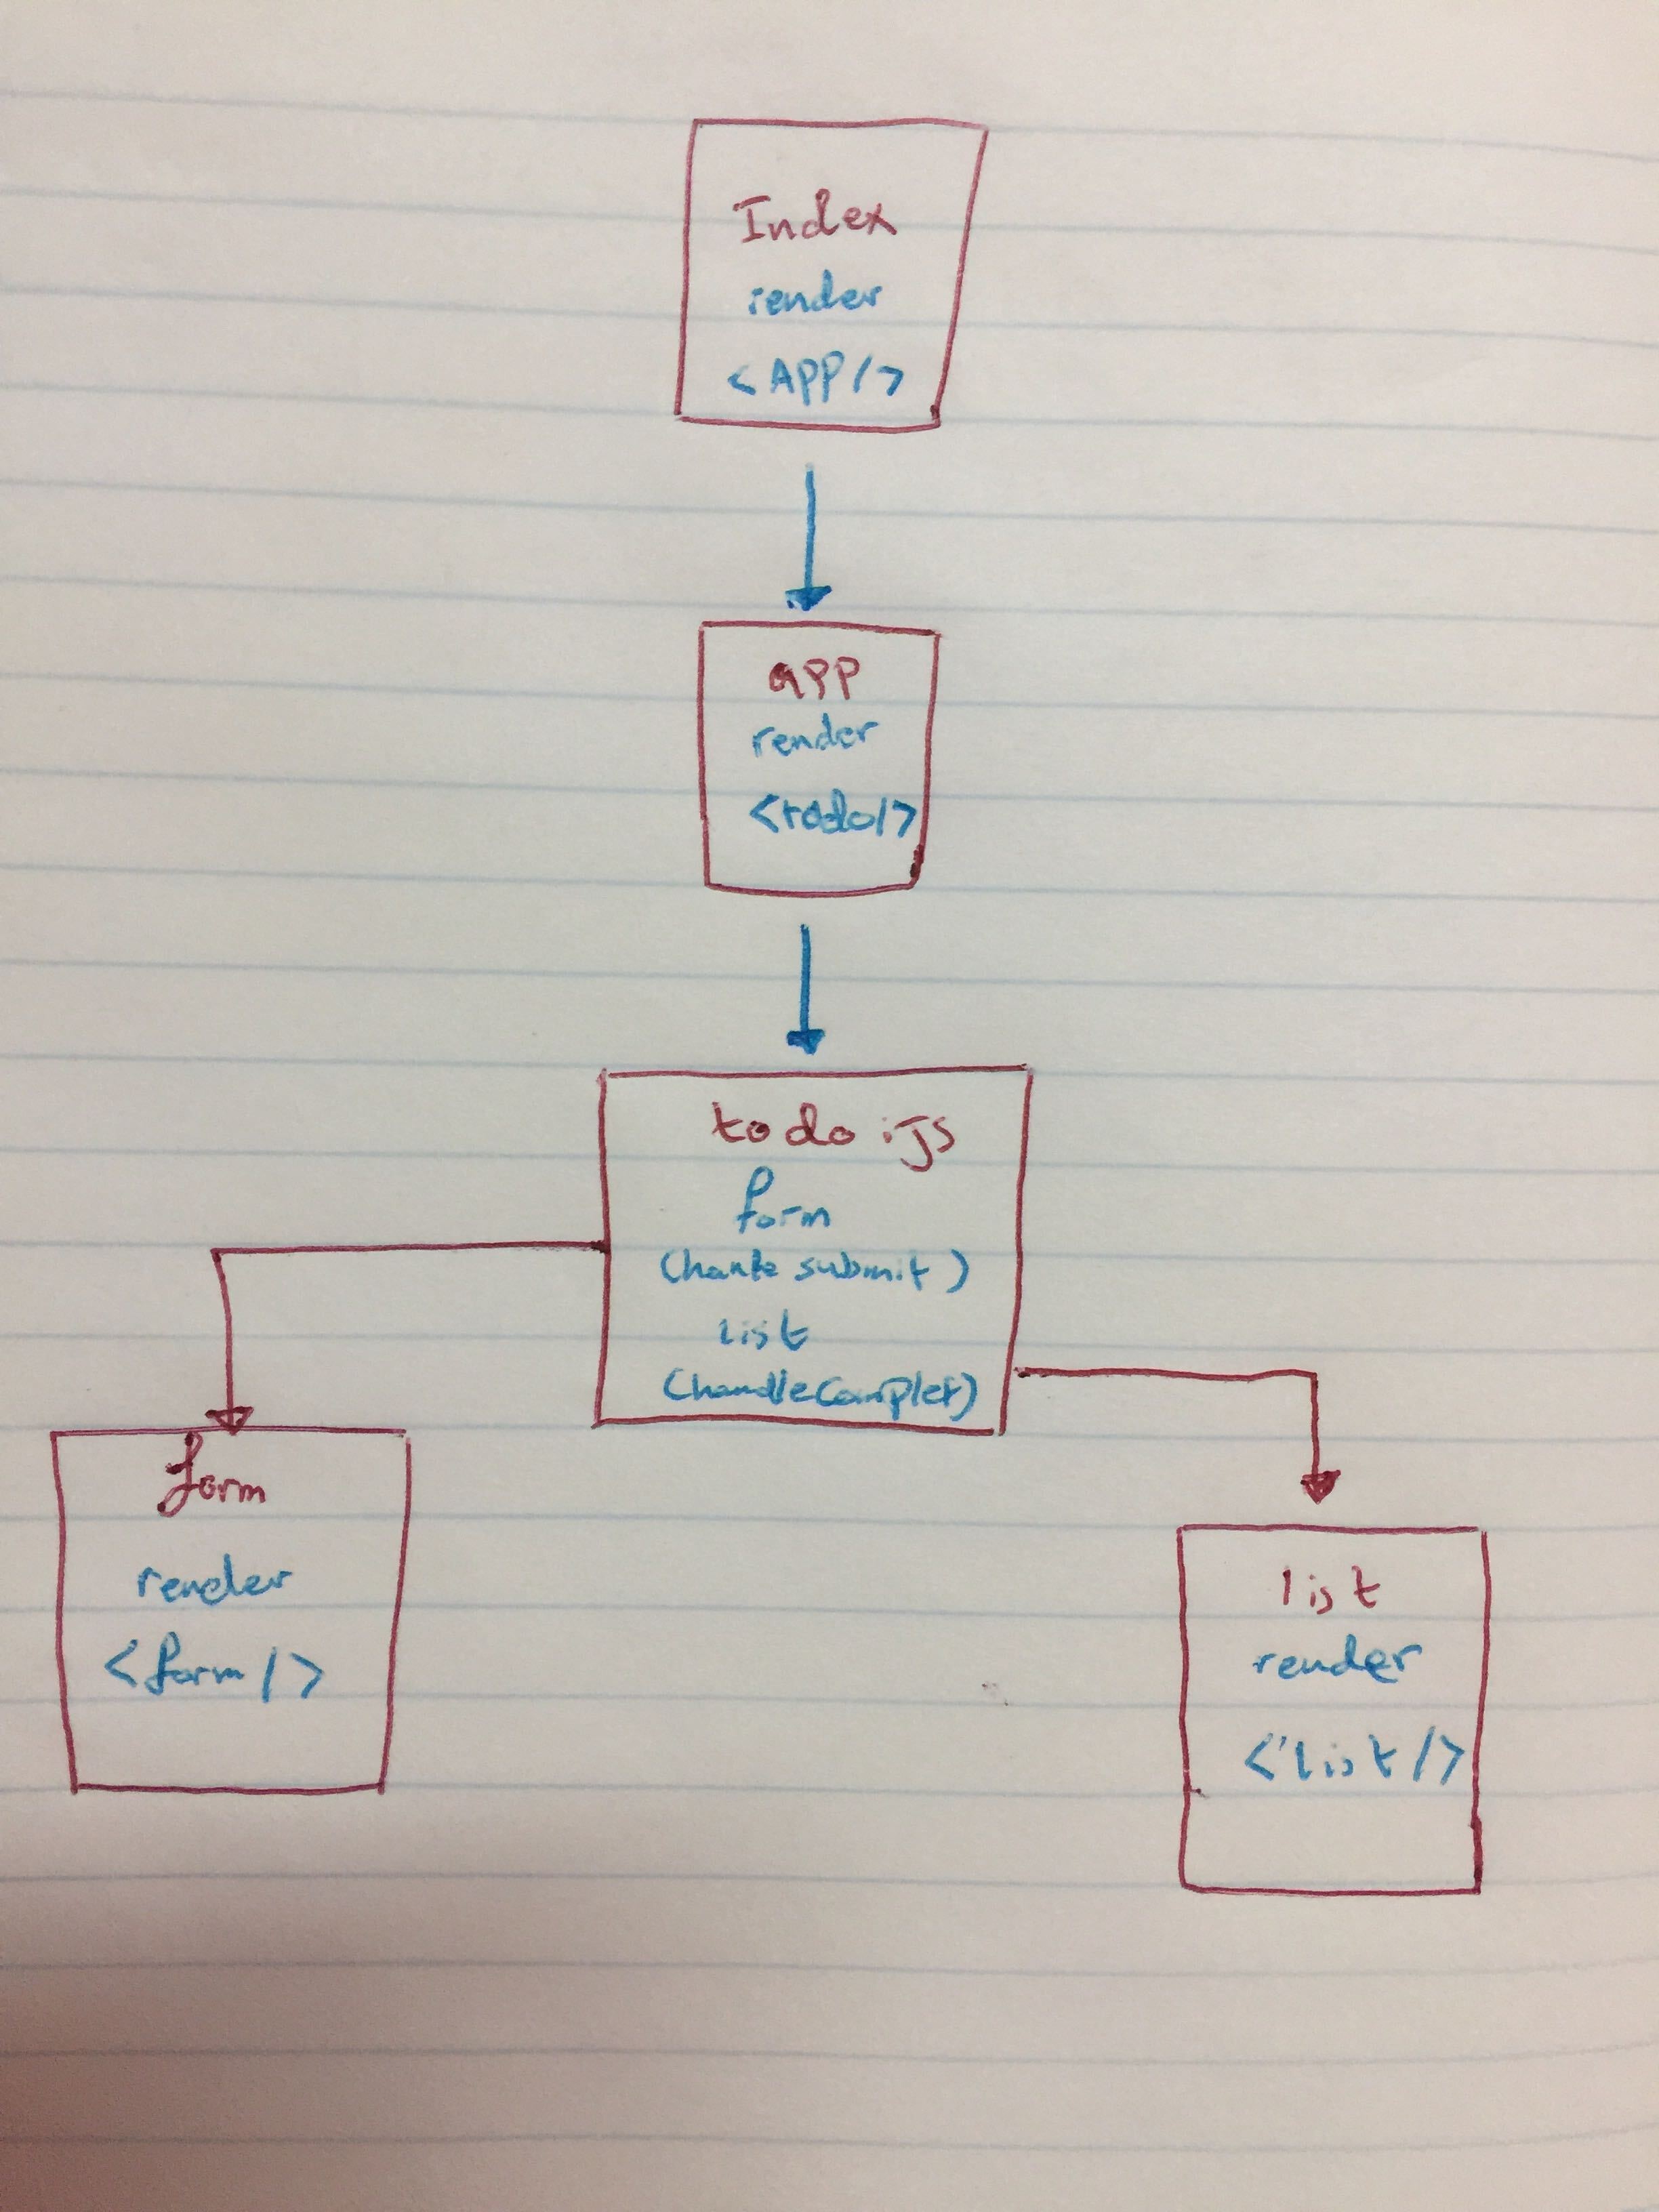 Index
render
<APP/>
app
render
<todo/>
todo.js
form
(hanle submit)
list
(handlecomplet)
form
render
<form/>
list
render
<list/>